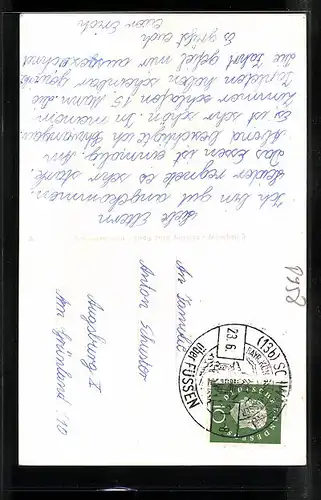 Liebe Eltern
Ich bin gut angekommen.
Leider regnete es sehr stark.
Das Essen ist einmalig. Am
Abend besichtigte ich Schwangau.
Es ist sehr schön. In manchem
Zimmer schlafen 15 Mann die
haben scheinbar
die Fahrt gefiel mir ausgezeichnet
Es grüßt euch
Euer Erich
An Familie
Anton Schuster
Augsburg
Am Grünland 10
(13b)
23.6.
über FÜSSEN
DEUTSCHE BUNDESPOST
10